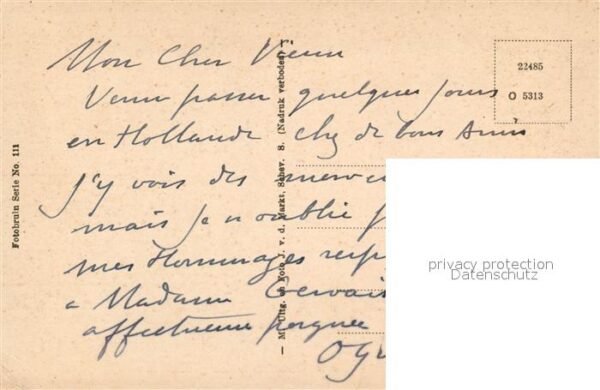 Mon Cher Vieux
Venu passer quelques jours
en Hollande chez de bons Amis
j'y vois des merv
mais je n'oublie p
mes Hommages resp
a Madame Gervais
affectueuse poignée
Fotobruin Serie No. 111
— M. Uitg. en Foto J. v. d. Markt, Schev. S. (Nadruk verboden) —
22485
O 5313
privacy protection
Datenschutz